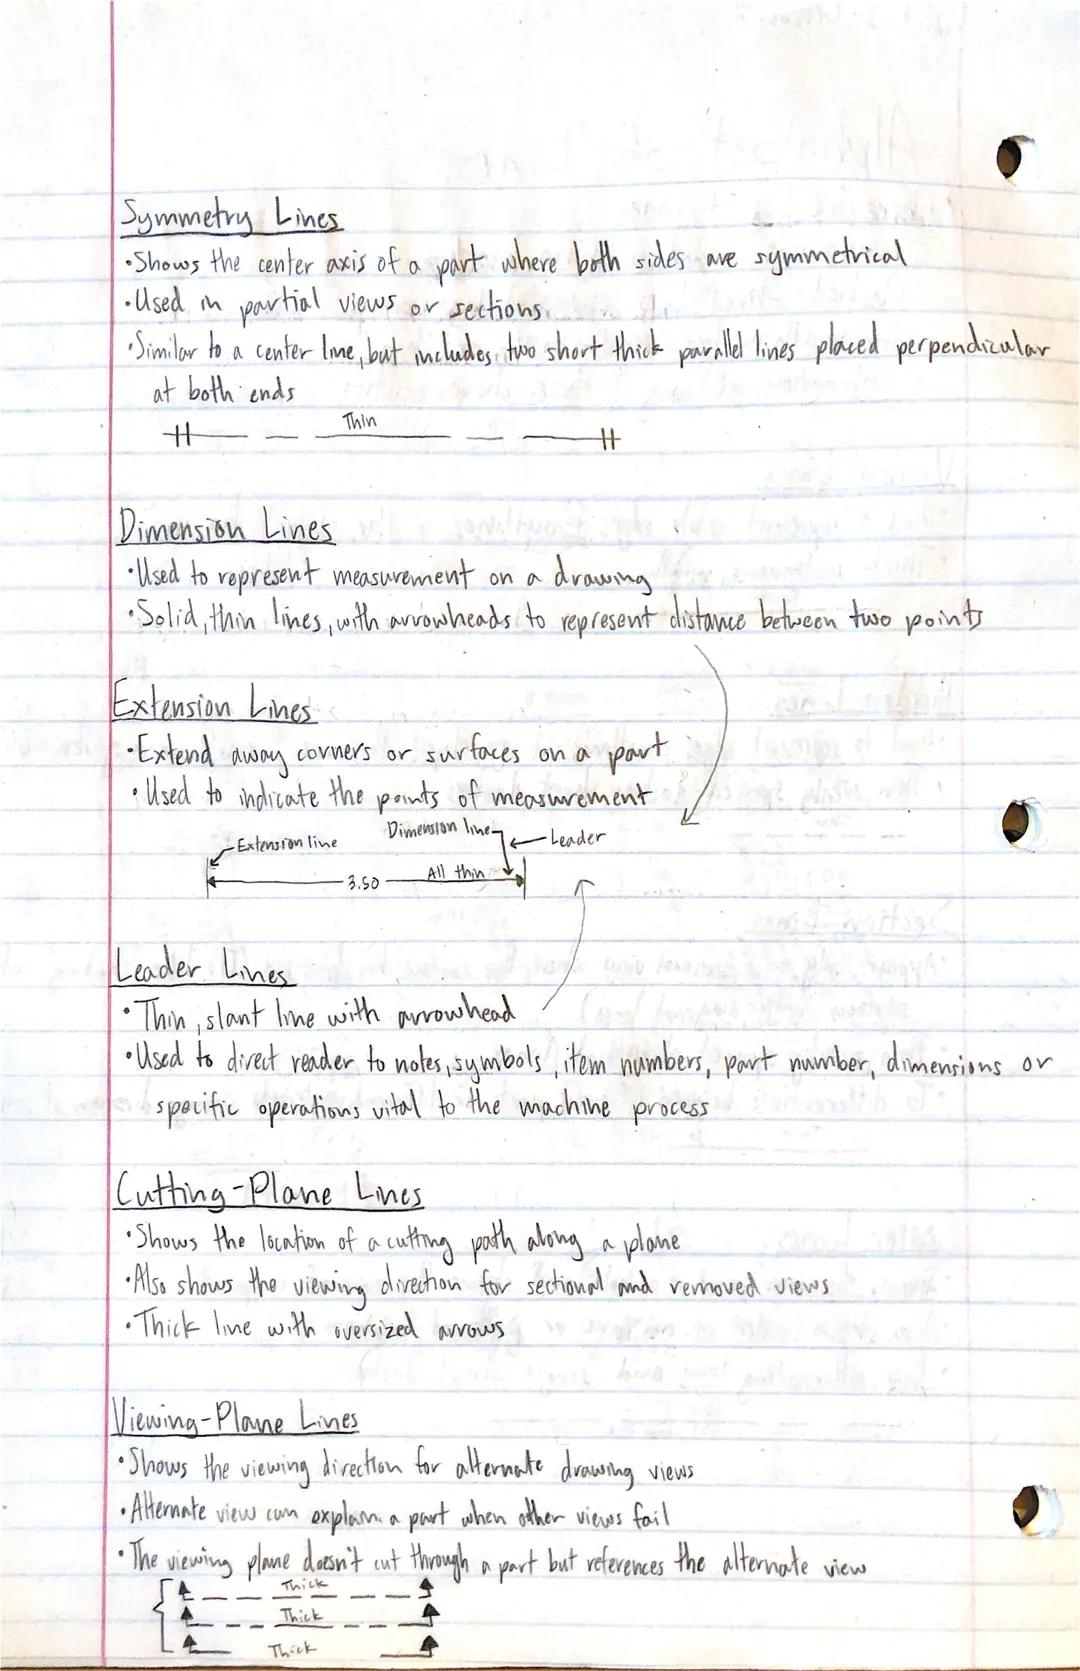 Symmetry Lines
•Shows the center axis of a part where both sides are symmetrical
•Used in partial views or sections
•Similar to a center line, but includes two short thick parallel lines placed perpendicular
at both ends
Thin
Dimension Lines
•Used to represent measurement on a drawing
•Solid, thin lines, with arrowheads to represent distance between two points
Extension Lines
•Extend away corners or surfaces on a part
•Used to indicate the points of measurement
Extension line
Dimension line
Leader
3.50
All thin
Leader Lines
•Thin, slant line with arrowhead
•Used to direct reader to notes, symbols, item numbers, part number, dimensions or
specific operations vital to the machine process
Cutting-Plane Lines
•Shows the location of a cutting path along a plane
•Also shows the viewing direction for sectional and removed views
•Thick line with oversized arrows
Viewing-Plane Lines
•Shows the viewing direction for alternate drawing views
•Alternate view can explain a part when other views fail
•The viewing plane doesn't cut through a part but references the alternate view
Thick
Thick
Thick